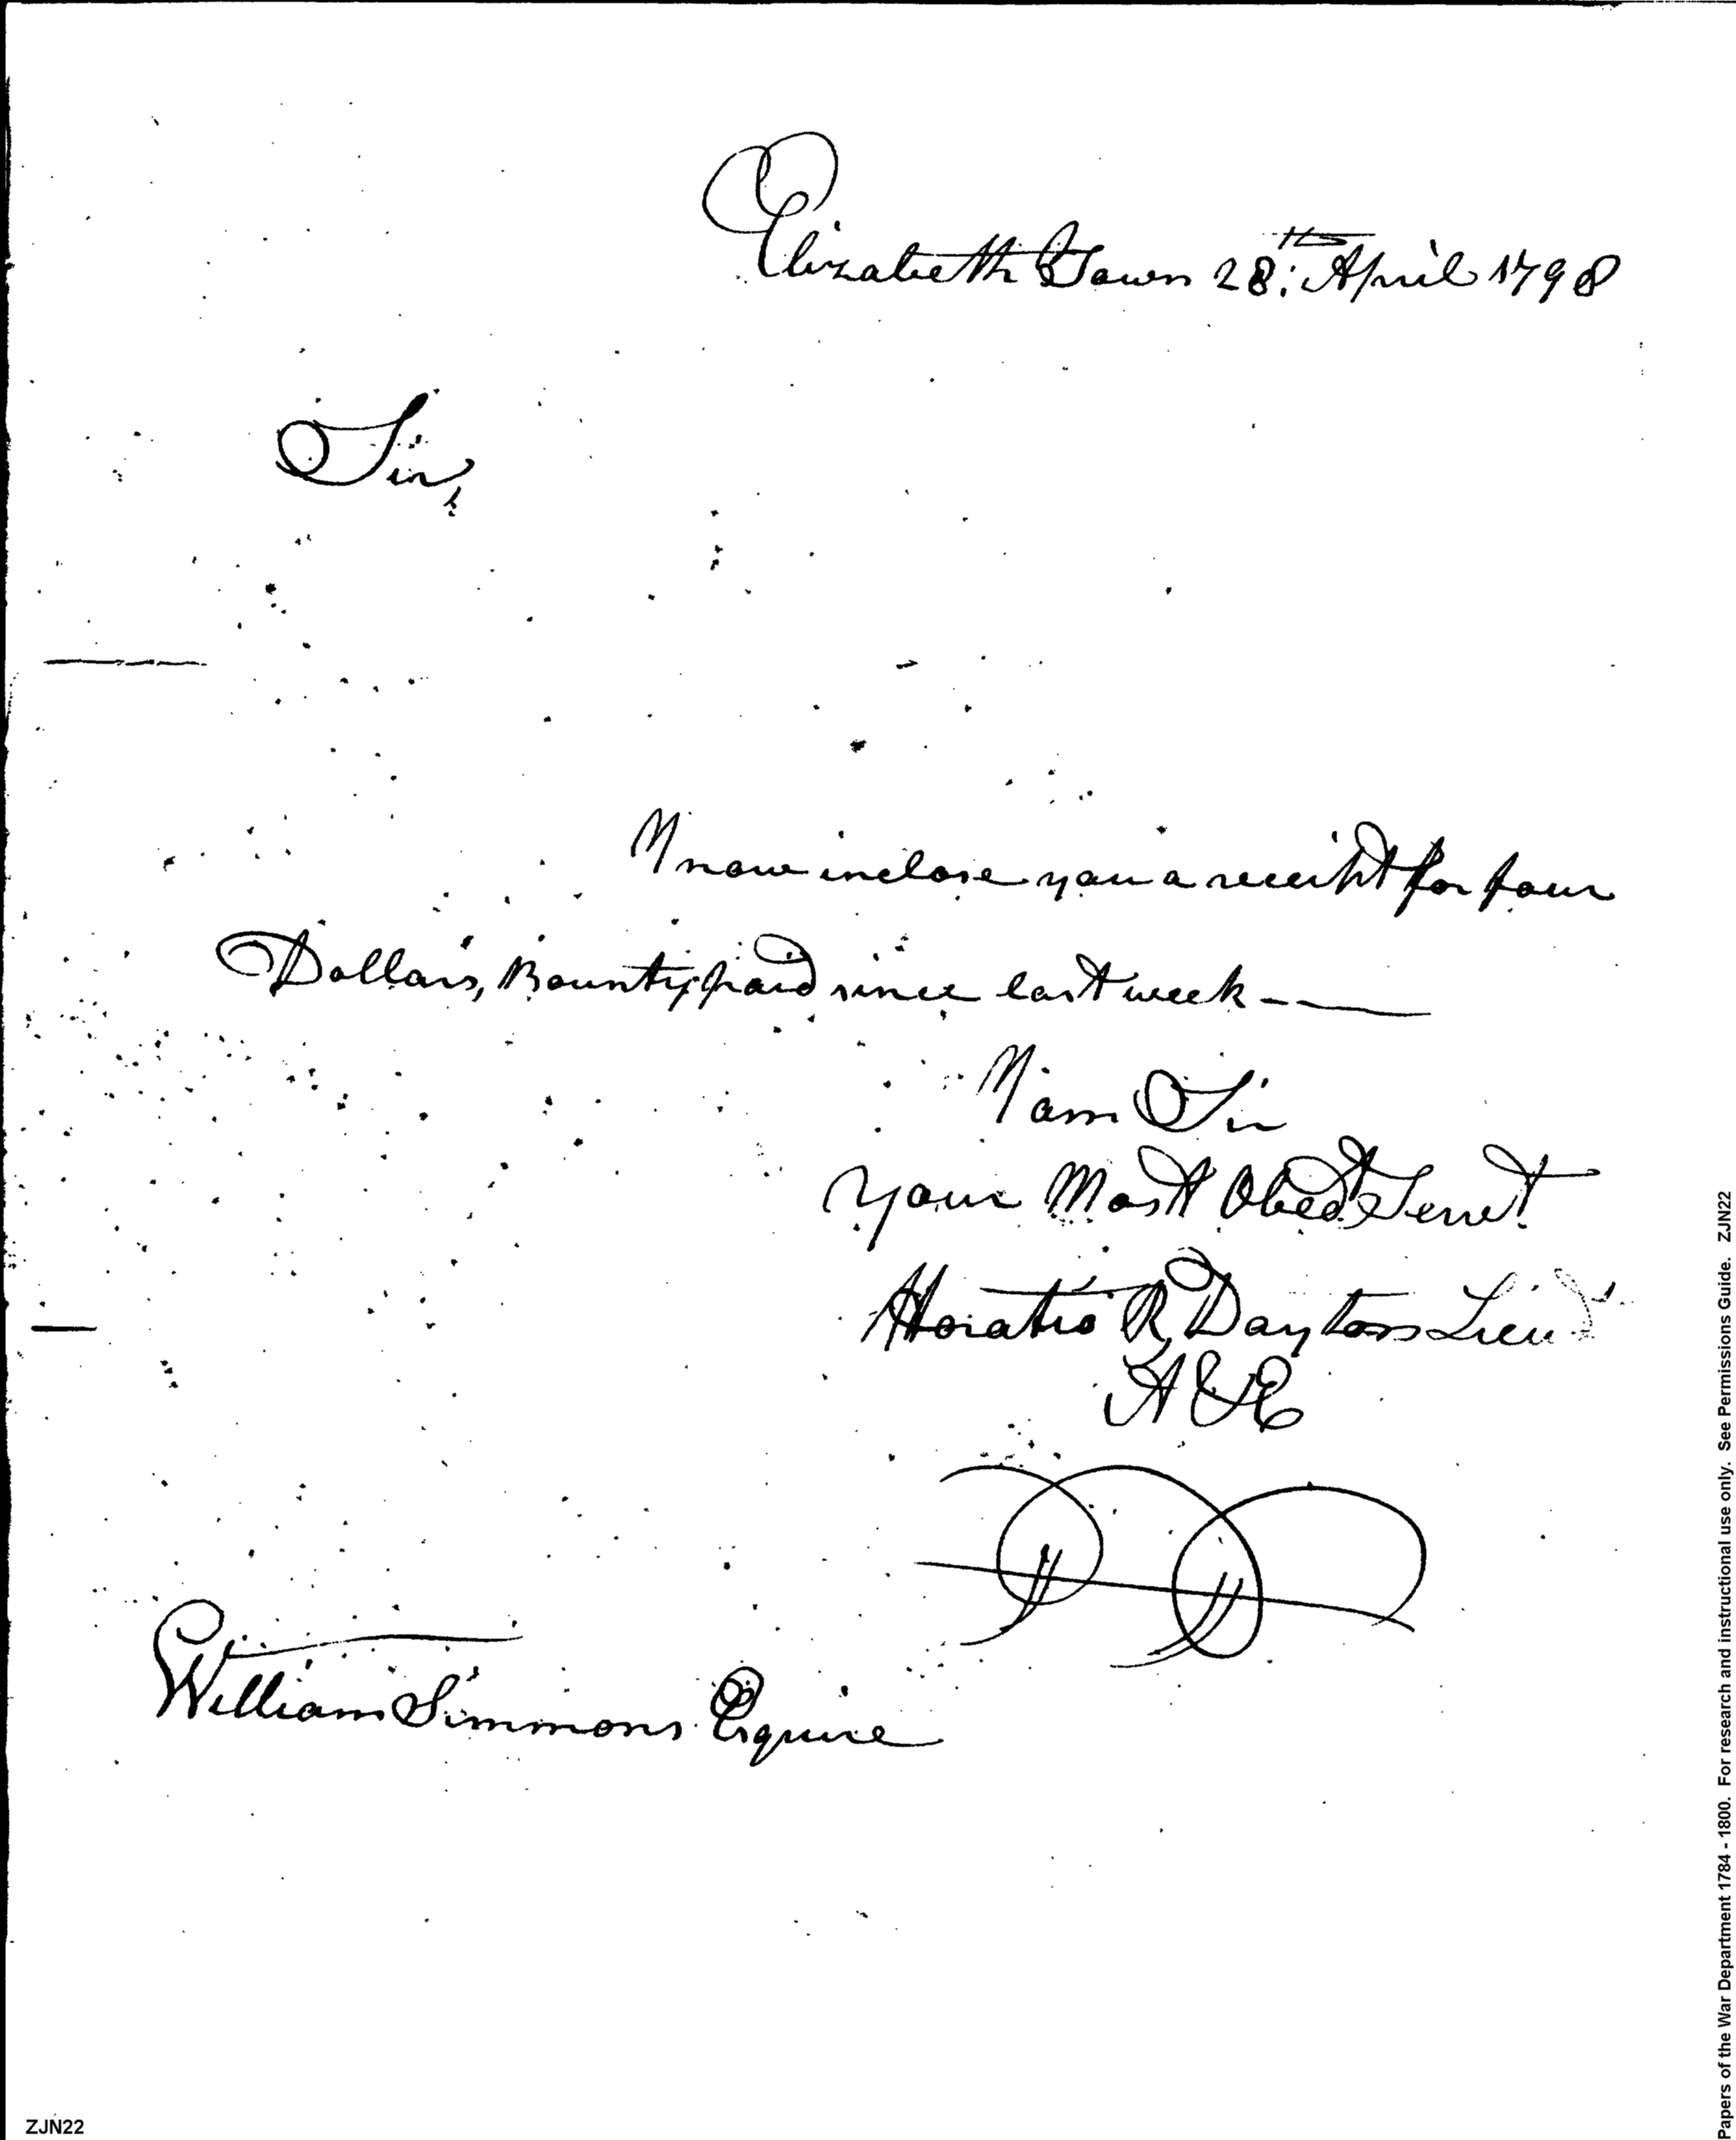 Elizabeth Town 28th April 1798
Sir,
I now inclose you a receipt for four
Dollars, Bounty paid since last week - —
I am Sir
Your Most Obedt Servt
Horatio R Dayton Lieut
A & E
William Simmons Esquire
ZJN22
Papers of the War Department 1784 - 1800. For research and instructional use only. See Permissions Guide. ZJN22